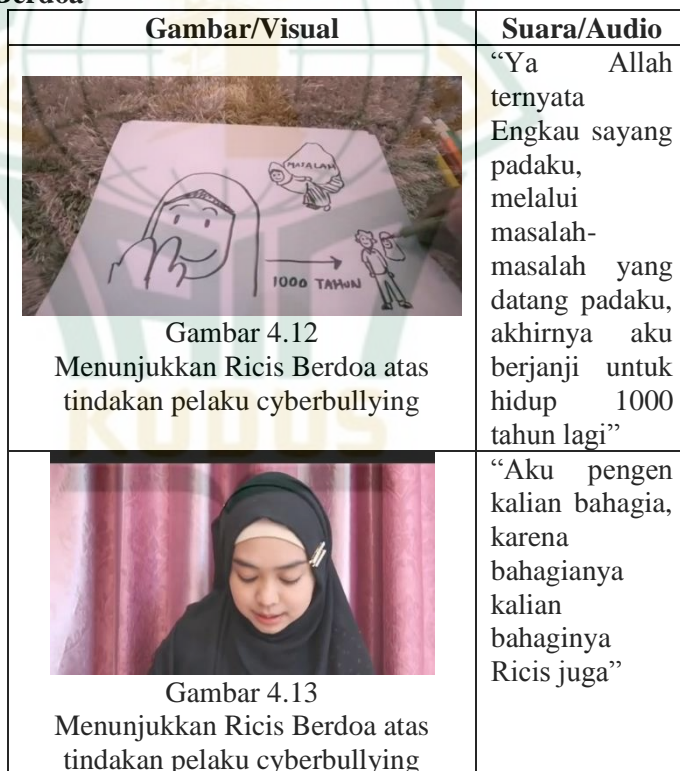 Berdoa
Gambar/Visual
Suara/Audio
MASALAH
1000 TAHUN
Gambar 4.12
Menunjukkan Ricis Berdoa atas
tindakan pelaku cyberbullying
“Ya Allah
ternyata
Engkau sayang
padaku,
melalui
masalah-
masalah yang
datang padaku,
akhirnya aku
berjanji untuk
hidup 1000
tahun lagi”
Gambar 4.13
Menunjukkan Ricis Berdoa atas
tindakan pelaku cyberbullying
“Aku pengen
kalian bahagia,
karena
bahagianya
kalian
bahaginya
Ricis juga”
KUDUS